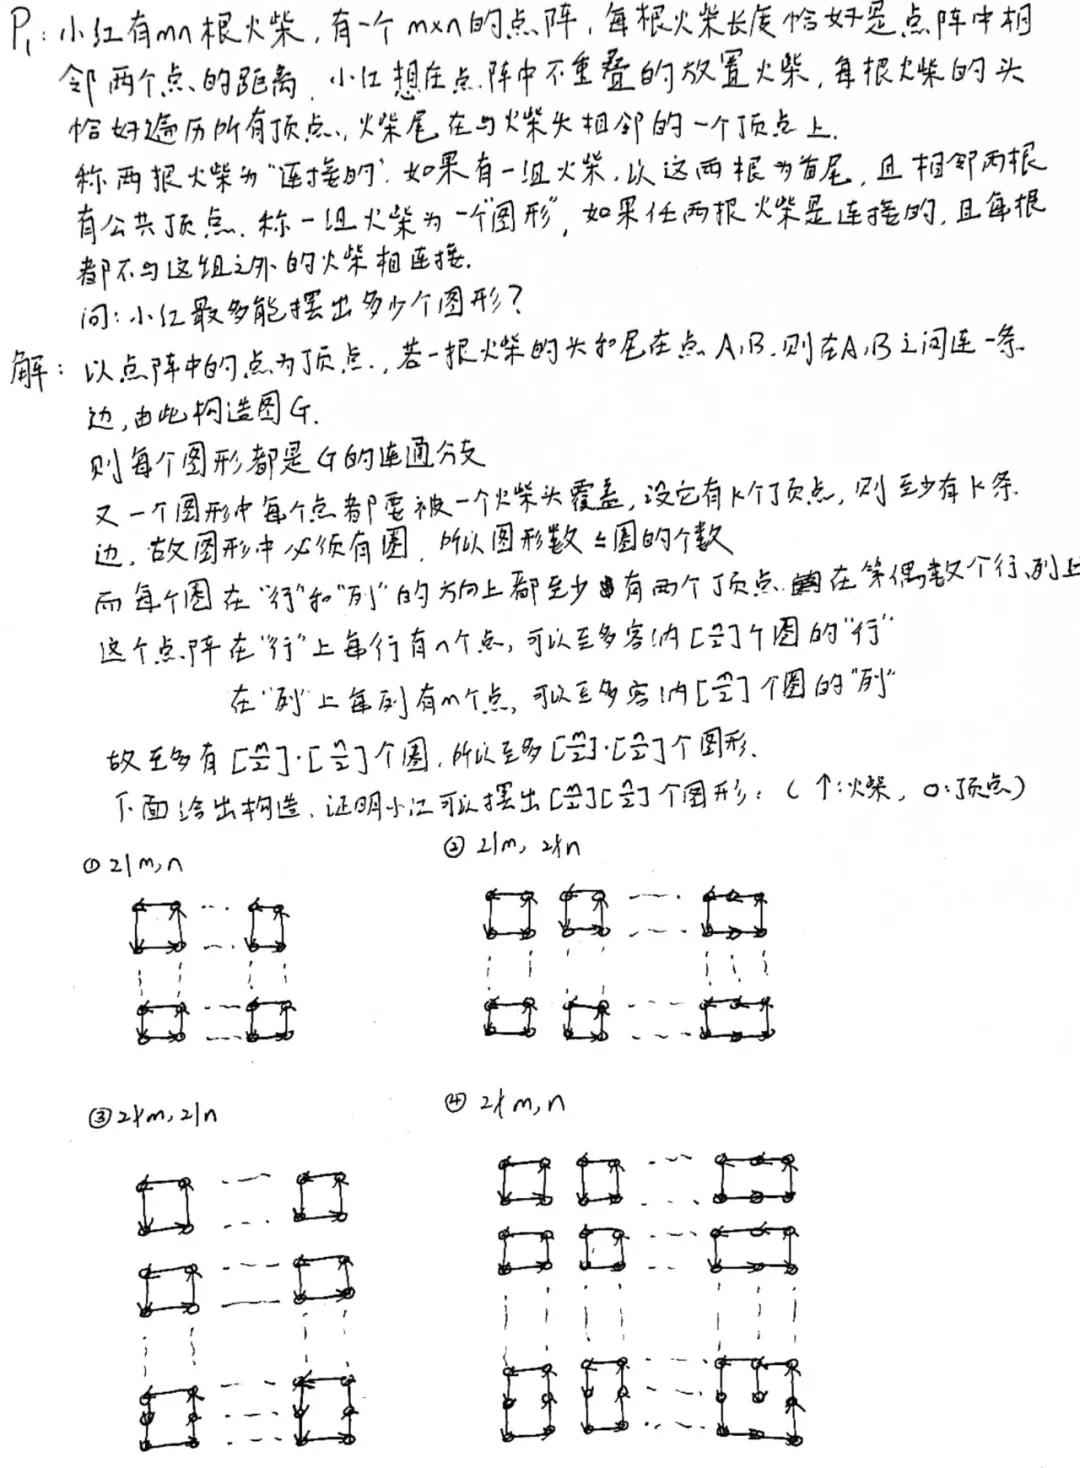 P₁: 小红有mn根火柴,有一个m×n的点阵,每根火柴长度恰好是点阵中相
邻两个点的距离.小红想在点阵中不重叠的放置火柴,每根火柴的头
恰好遍历所有顶点,火柴尾在与火柴头相邻的一个顶点上.
称两根火柴为"连接的".如果有一组火柴,以这两根为首尾,且相邻两根
有公共顶点.称一组火柴为一个"图形",如果任两根火柴是连接的,且每根
都不与这组之外的火柴相连接.
问:小红最多能摆出多少个图形?
解:以点阵中的点为顶点,若一根火柴的头和尾在点A,B.则在A,B之间连一条
边,由此构造图G.
则每个图形都是G的连通分支
又一个图形中每个点都要被一个火柴头覆盖,设它有k个顶点,则至少有k条
边,故图形中必须有圈.所以图形数≤圈的个数
而每个圈在"行"和"列"的方向上都至少有两个顶点.在第偶数个行、列上
这个点阵在"行"上每行有n个点,可以至多容纳[n/2]个圈的"行"
在"列"上每列有m个点,可以至多容纳[m/2]个圈的"列"
故至多有[m/2]·[n/2]个圈,所以至多[m/2]·[n/2]个图形.
下面给出构造,证明小红可以摆出[m/2][n/2]个图形:(↑:火柴,O:顶点)
① 2|m,n
② 2|m, 2∤n
③ 2∤m, 2|n
④ 2∤m,n